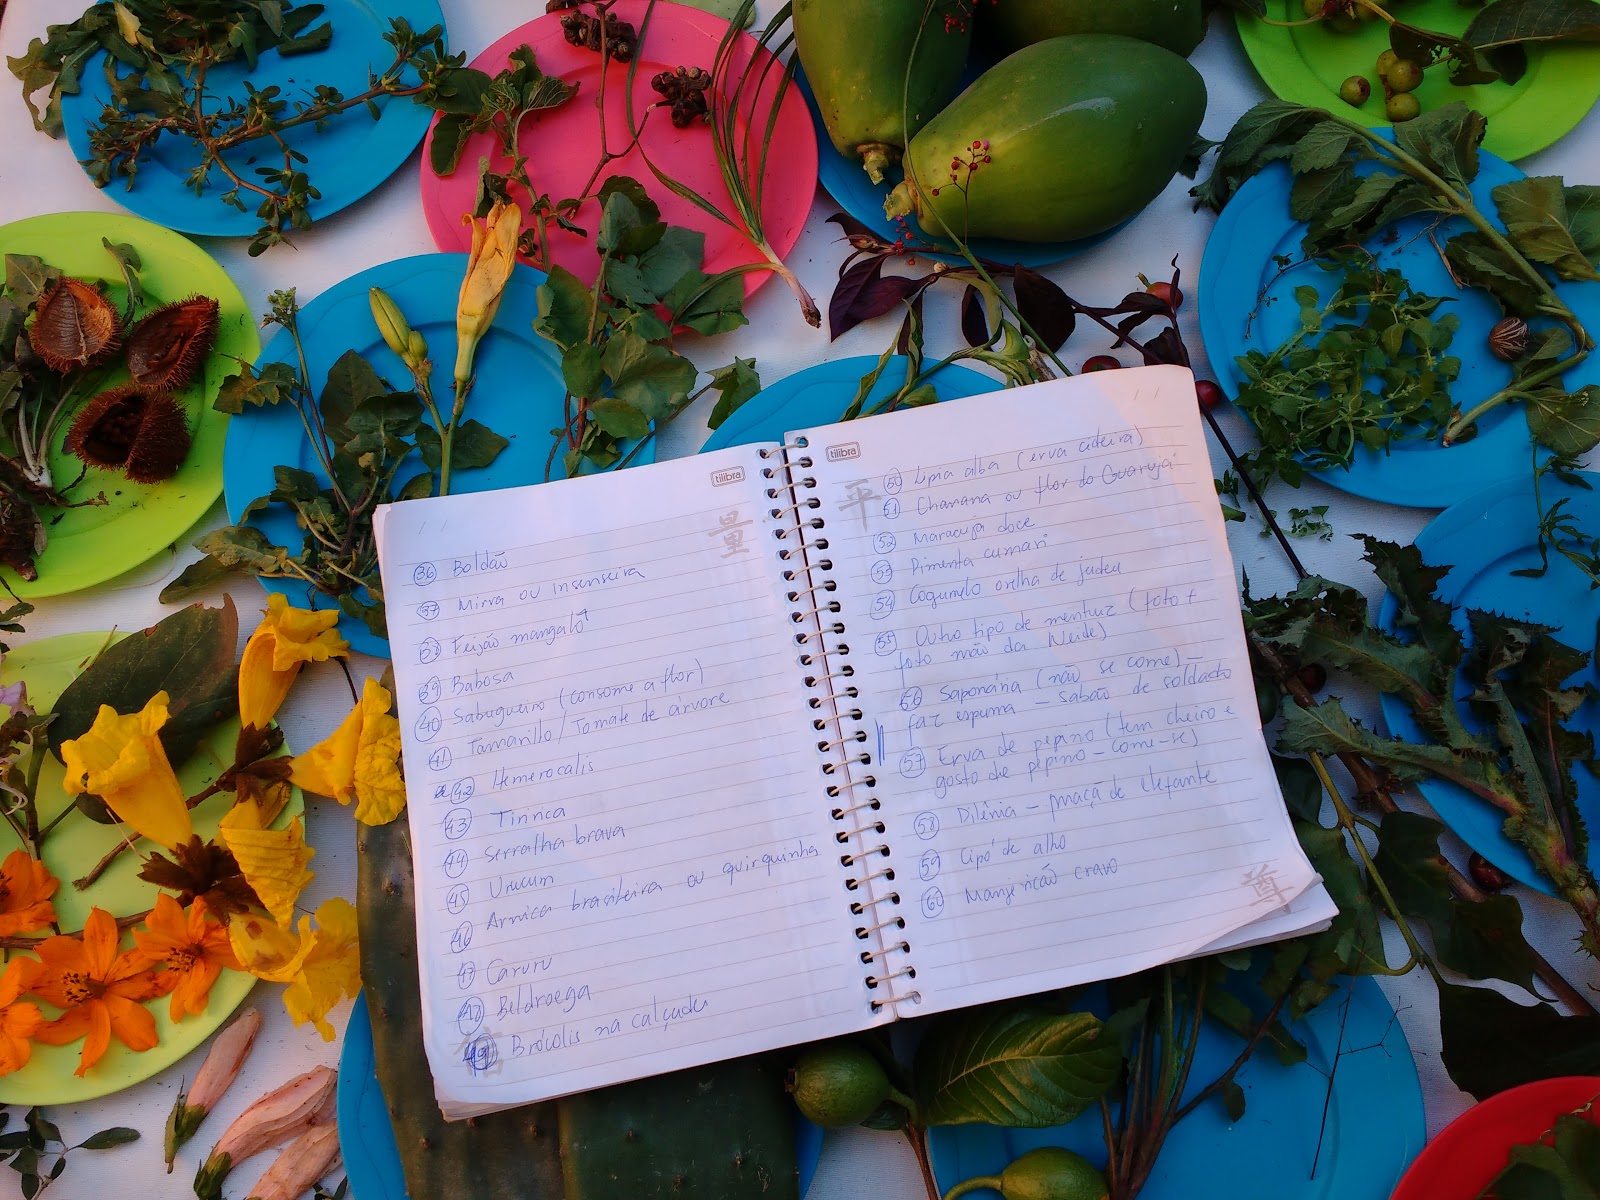 tilibra
量
36 Boldão
37 Mirra ou insenseira
38 Feijão mangalô
39 Babosa
40 Sabugueiro (consome a flor)
41 Tamarillo/Tomate de árvore
42 Hemerocalis
43 Tiririca
44 Serralha brava
45 Urucum
46 Arnica brasileira ou quirquinha
47 Caruru
48 Beldroega
49 Brócolis na calçada
tilibra
平
50 Lipia alba (erva cideira)
51 Chanana ou flor do Guarujá
52 Maracuja doce
53 Pimenta cumari
54 Cogumelo orelha de judeu
55 Outro tipo de mentruz (foto +
foto mão da Neide)
56 Saponária (não se come) –
faz espuma – sabão de soldado
57 Erva de pepino (tem cheiro e
gosto de pepino – come-se)
58 Dilênia – maçã de elefante
59 Cipó de alho
60 Manjericão cravo
尊